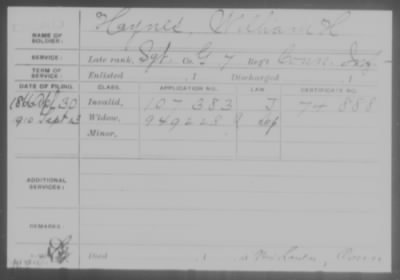 NAME OF SOLDIER: Haynes, William H
SERVICE: Late rank, Sgt. Co. G, 7 Reg't Conn. Inf.
TERM OF SERVICE: Enlisted , 1 Discharged , 1
DATE OF FILING. CLASS. APPLICATION NO. LAW. CERTIFICATE NO.
1866 30 Invalid, 107 383 J 74 888
1910 Sept 23 Widow, 949228
Minor,
ADDITIONAL SERVICES:
REMARKS:
Died , 1 at New London, Conn